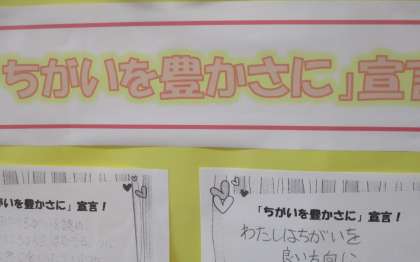 ちがいを豊かさに」宣言
いを豊かさに」宣言！
「ちがいを豊かさに」宣言！
わたしはちがいを
良い方向に